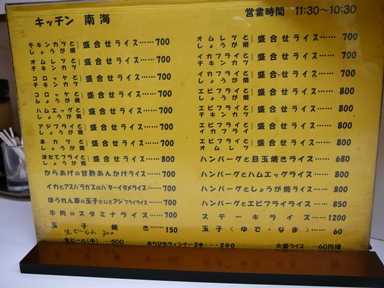 キッチン 南海
営業時間 11:30〜10:30
チキンカツとしょうが焼 盛合せライス……700
オムレツとチキンカツ 盛合せライス……700
コロッケとチキンカツ 盛合せライス……700
コロッケとしょうが焼 盛合せライス……700
ハムエッグとしょうが焼 盛合せライス……800
アジフライとしょうが焼 盛合せライス……700
串カツとしょうが焼 盛合せライス……800
ほたてフライとしょうが焼 盛合せライス……800
からあげの甘酢あんかけライス……700
イカとアスパラガスのバターイタメライス……700
ほうれん草の玉子とじとアジフライライス……700
牛肉のスタミナライス……700
玉子焼き……150
生ビール(中)……500
オムレツとしょうが焼 盛合せライス……700
イカフライとチキンカツ 盛合せライス……700
イカフライとしょうが焼 盛合せライス……700
エビフライとしょうが焼 盛合せライス……800
エビフライとチキンカツ 盛合せライス……800
エビフライとイカフライ 盛合せライス……800
エビフライとオムレツ 盛合せライス……800
ハンバーグと目玉焼きライス……680
ハンバーグとハムエッグライス……800
ハンバーグとしょうが焼ライス……800
ハンバーグとエビフライライス……850
ステーキライス……1200
玉子(ゆで・なま)……60
あらびきウィンナー3本……200
大盛ライス……60円増